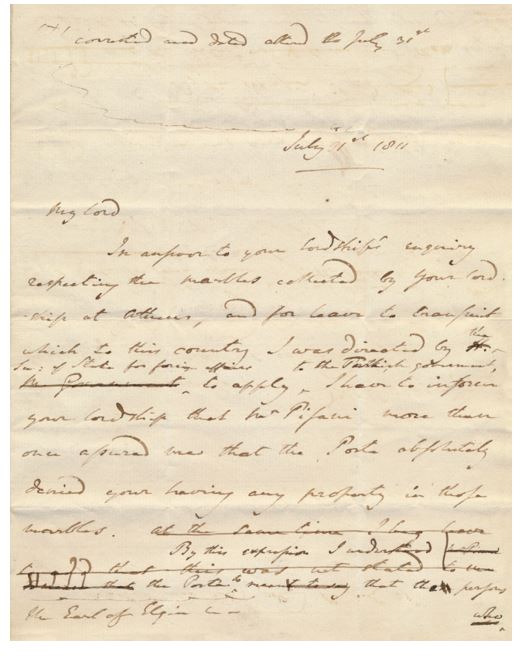 corrected and dated altered to July 31st
July 31st 1811
My Lord
In answer to your Lordship's enquiry
respecting the marbles collected by your Lord-
-ship at Athens, and for leave to transmit
which to this country I was directed by the
Sec: of State for forin affairs to the Turkish government,
to apply, I have to inform
your Lordship that Mr Pisani more than
once assured me that the Porte absolutely
denied your having any property in those
marbles. at the same time I beg leave
By this expression I understand
that this was not stated to me
that the Porte meant to say that the persons
the Earl of Elgin
who